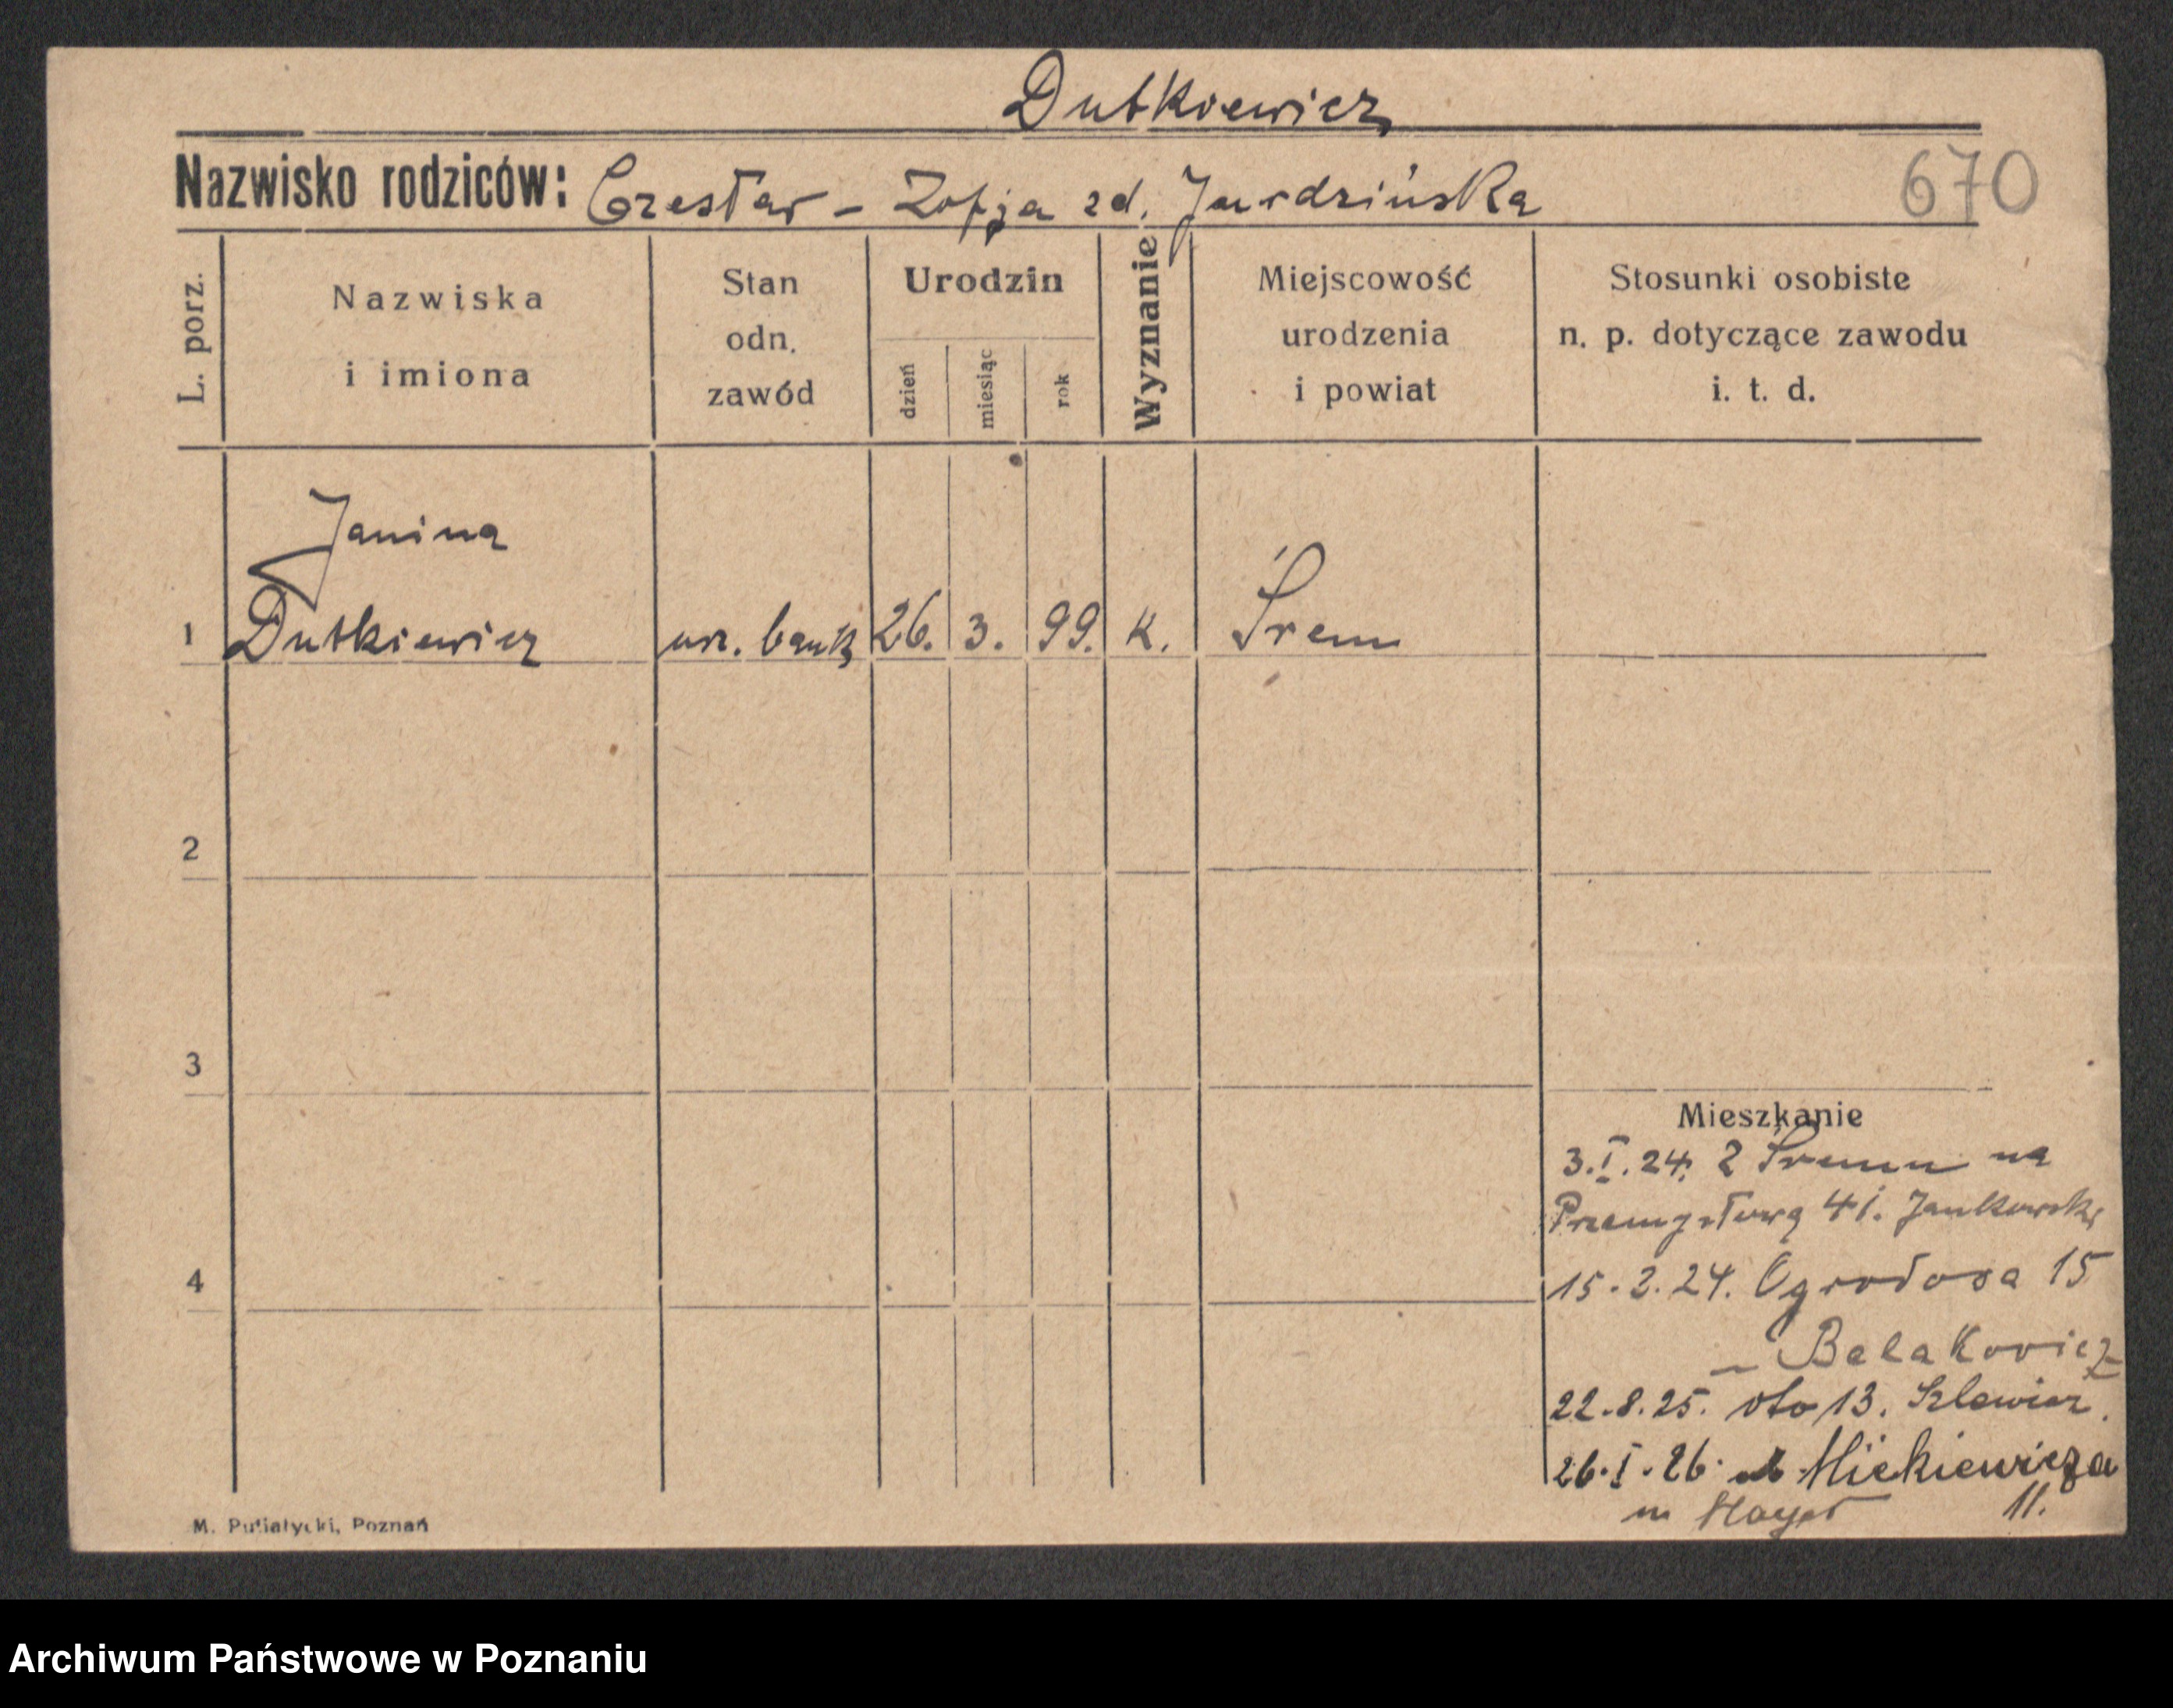 Dutkiewicz
Nazwisko rodziców: Czesław - Zofja zd. Jurdzińska
670
L. porz.
Nazwiska
i imiona
Stan
odn.
zawód
Urodzin
dzień
miesiąc
rok
Wyznanie
Miejscowość
urodzenia
i powiat
Stosunki osobiste
n. p. dotyczące zawodu
i. t. d.
Janina
1 Dutkiewicz urz. bank 26. 3. 99. K. Śrem
2
3
4
Mieszkanie
3.I.24. z Śremu na
Przemysłową 41. Jankowski
15.2.24. Ogrodowa 15
- Belakowicz
22.8.25. oto 13.
26.I.26. Mickiewicza
11.
M. Putiatycki, Poznań
Archiwum Państwowe w Poznaniu